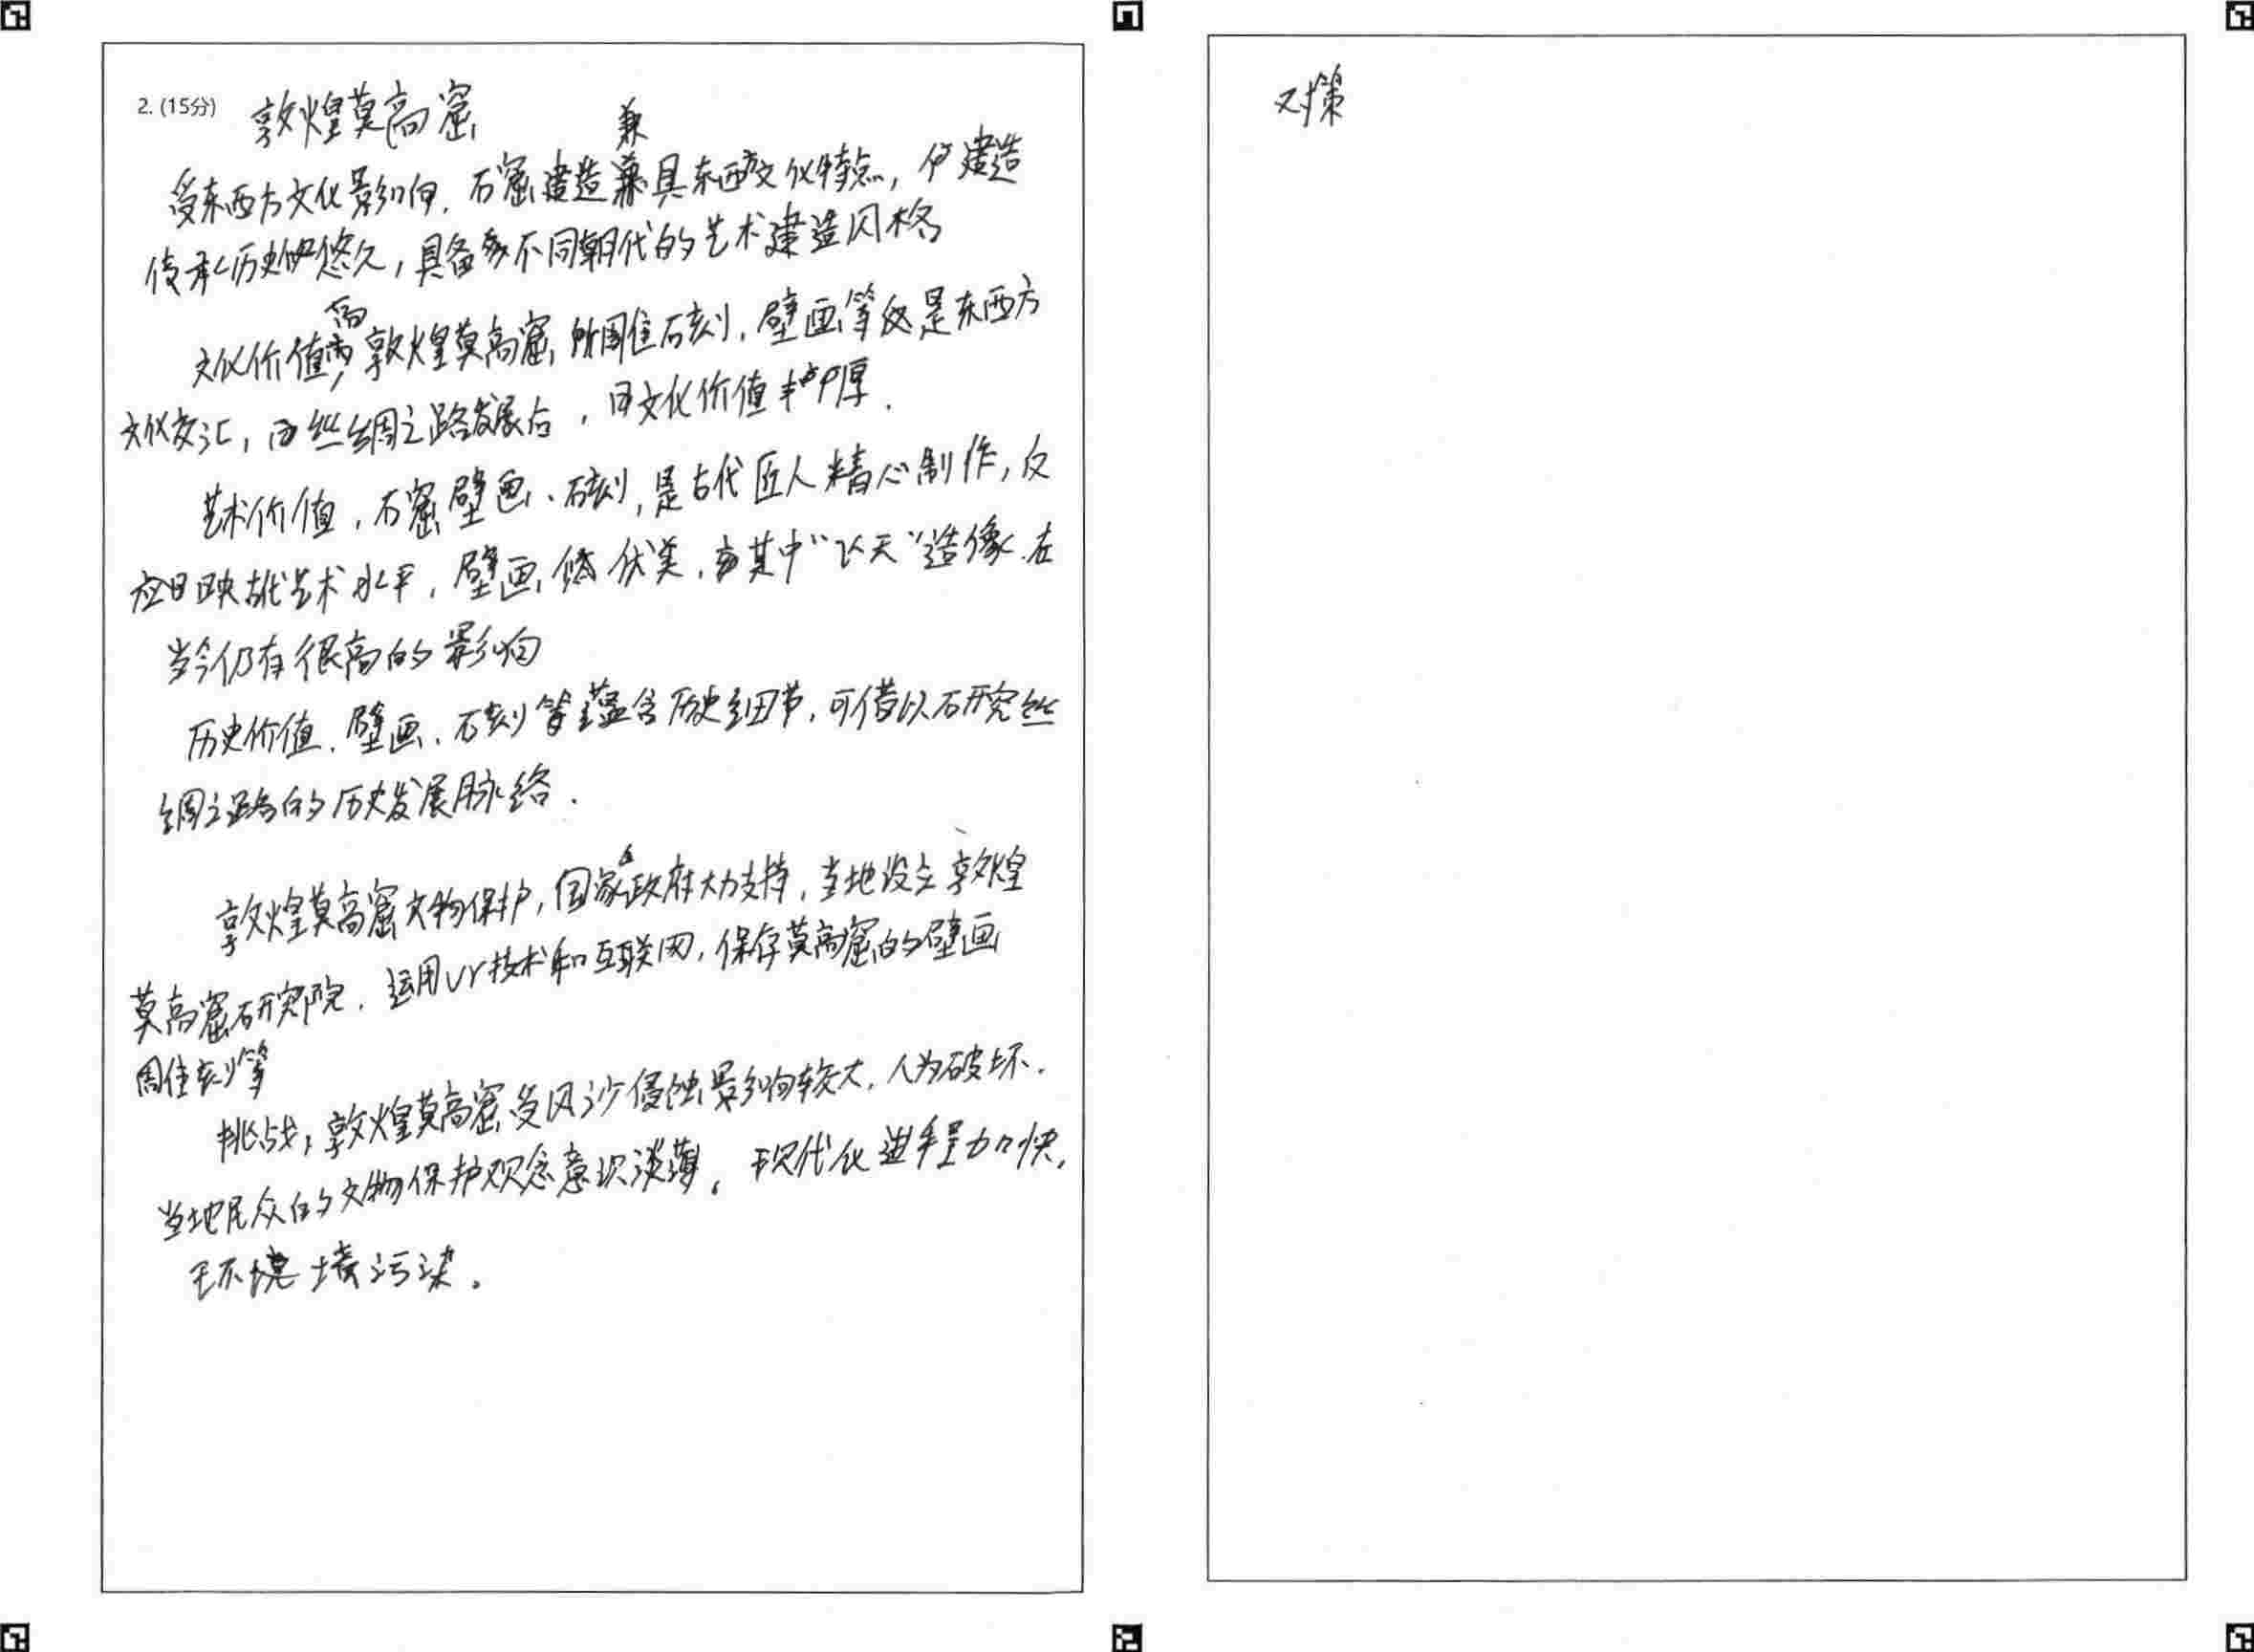 2. (15分) 敦煌莫高窟
兼
受东西方文化影响，石窟建造具东西方文化特点，建造
传承历史悠久，具备不同朝代的艺术建造风格
高
文化价值，敦煌莫高窟石刻，壁画等是东西方
文化交汇，丝绸之路发展后，文化价值丰厚．
艺术价值，石窟壁画、石刻，是古代匠人精心制作，反
映古代艺术水平，壁画优美，其中“飞天”造像．在
当今仍有很高的影响
历史价值．壁画、石刻等蕴含历史细节，可借以研究丝
绸之路的历史发展脉络．
敦煌莫高窟文物保护，国家政府大力支持，当地设立敦煌
莫高窟研究院．运用Vr技术和互联网，保存莫高窟的壁画
刻等
挑战，敦煌莫高窟受风沙侵蚀影响较大，人为破坏．
当地民众的文物保护观念意识淡薄。现代化进程加快，
环境污染。
对策